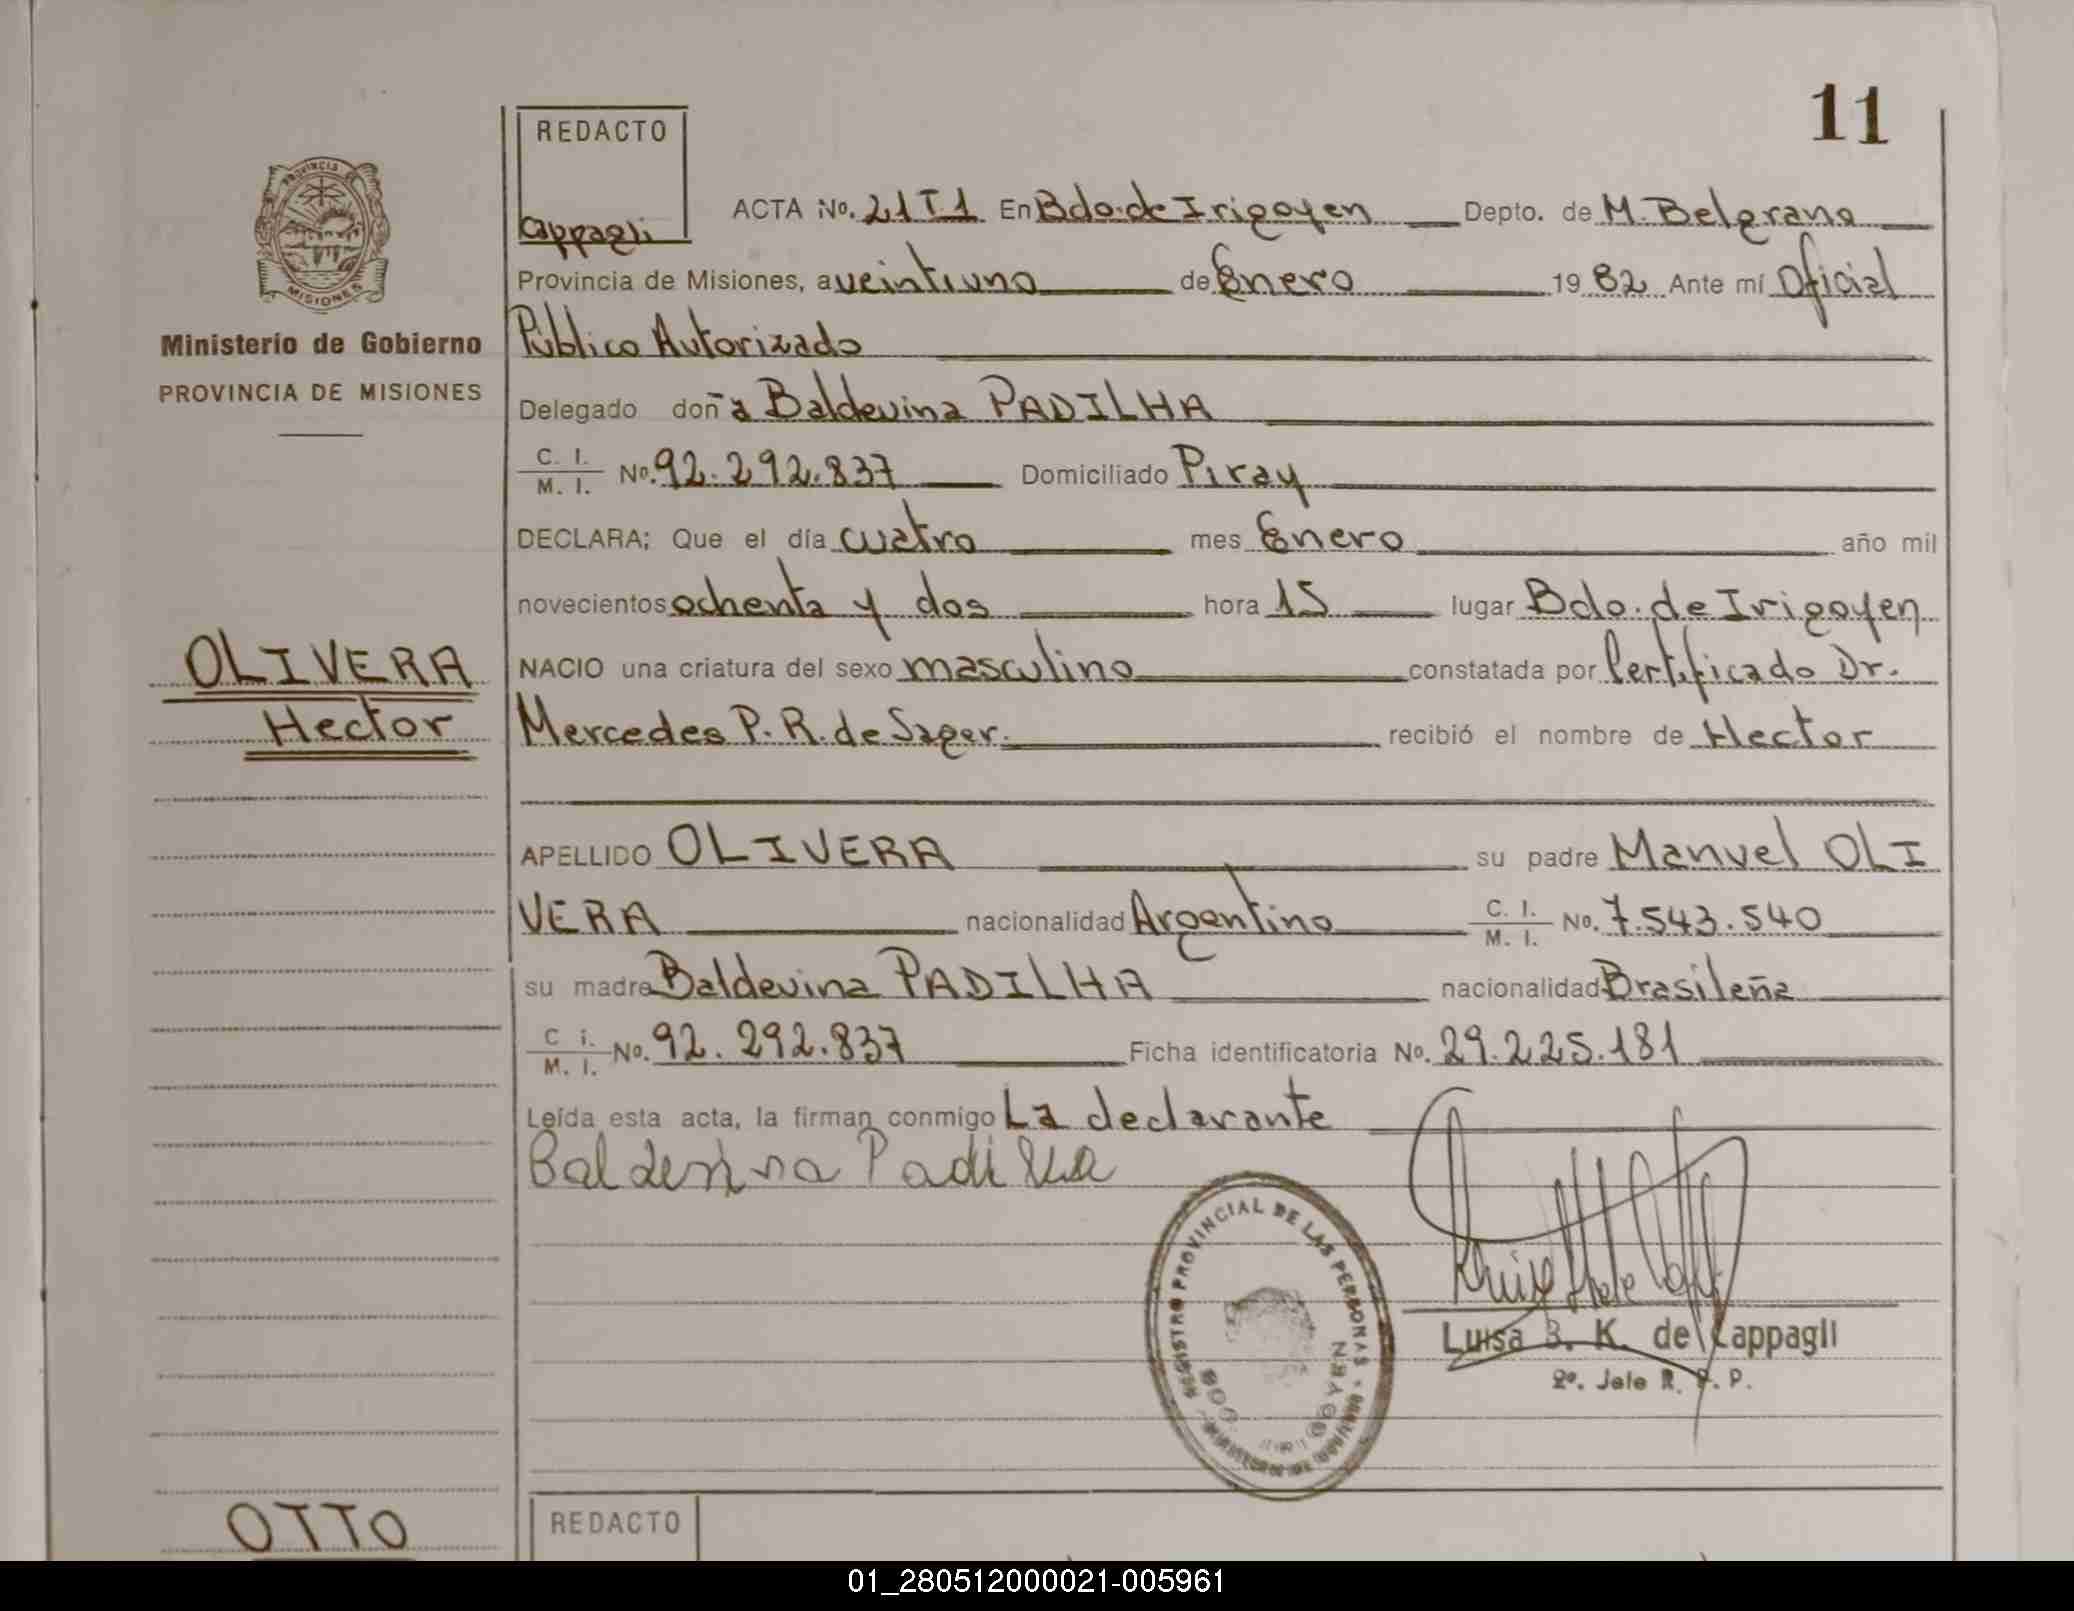 11
REDACTO
Cappagli
PROVINCIA DE
MISIONES
Ministerio de Gobierno
PROVINCIA DE MISIONES
ACTA No. 21 T1 En Bdo. de Irigoyen Depto. de M. Belgrano
Provincia de Misiones, a veintiuno de Enero 19 82 Ante mí Oficial
Público Autorizado
Delegado doña Baldevina PADILHA
C. I. / M. I. No. 92.292.837 Domiciliado Piray
DECLARA; Que el día cuatro mes Enero año mil
novecientos ochenta y dos hora 15 lugar Bdo. de Irigoyen
OLIVERA
Hector
NACIO una criatura del sexo masculino constatada por Certificado Dr.
Mercedes P. R. de Sager. recibió el nombre de Hector
APELLIDO OLIVERA su padre Manuel OLI
VERA nacionalidad Argentino C. I. / M. I. No. 7.543.540
su madre Baldevina PADILHA nacionalidad Brasileña
C i. / M. I. No. 92.292.837 Ficha identificatoria No. 29.225.181
Leída esta acta, la firman conmigo La declarante
Baldevina Padilha
REGISTRO PROVINCIAL DE LAS PERSONAS
Luisa B. K. de Cappagli
2º. Jefe R. P. P.
OTTO
REDACTO
01_280512000021-005961